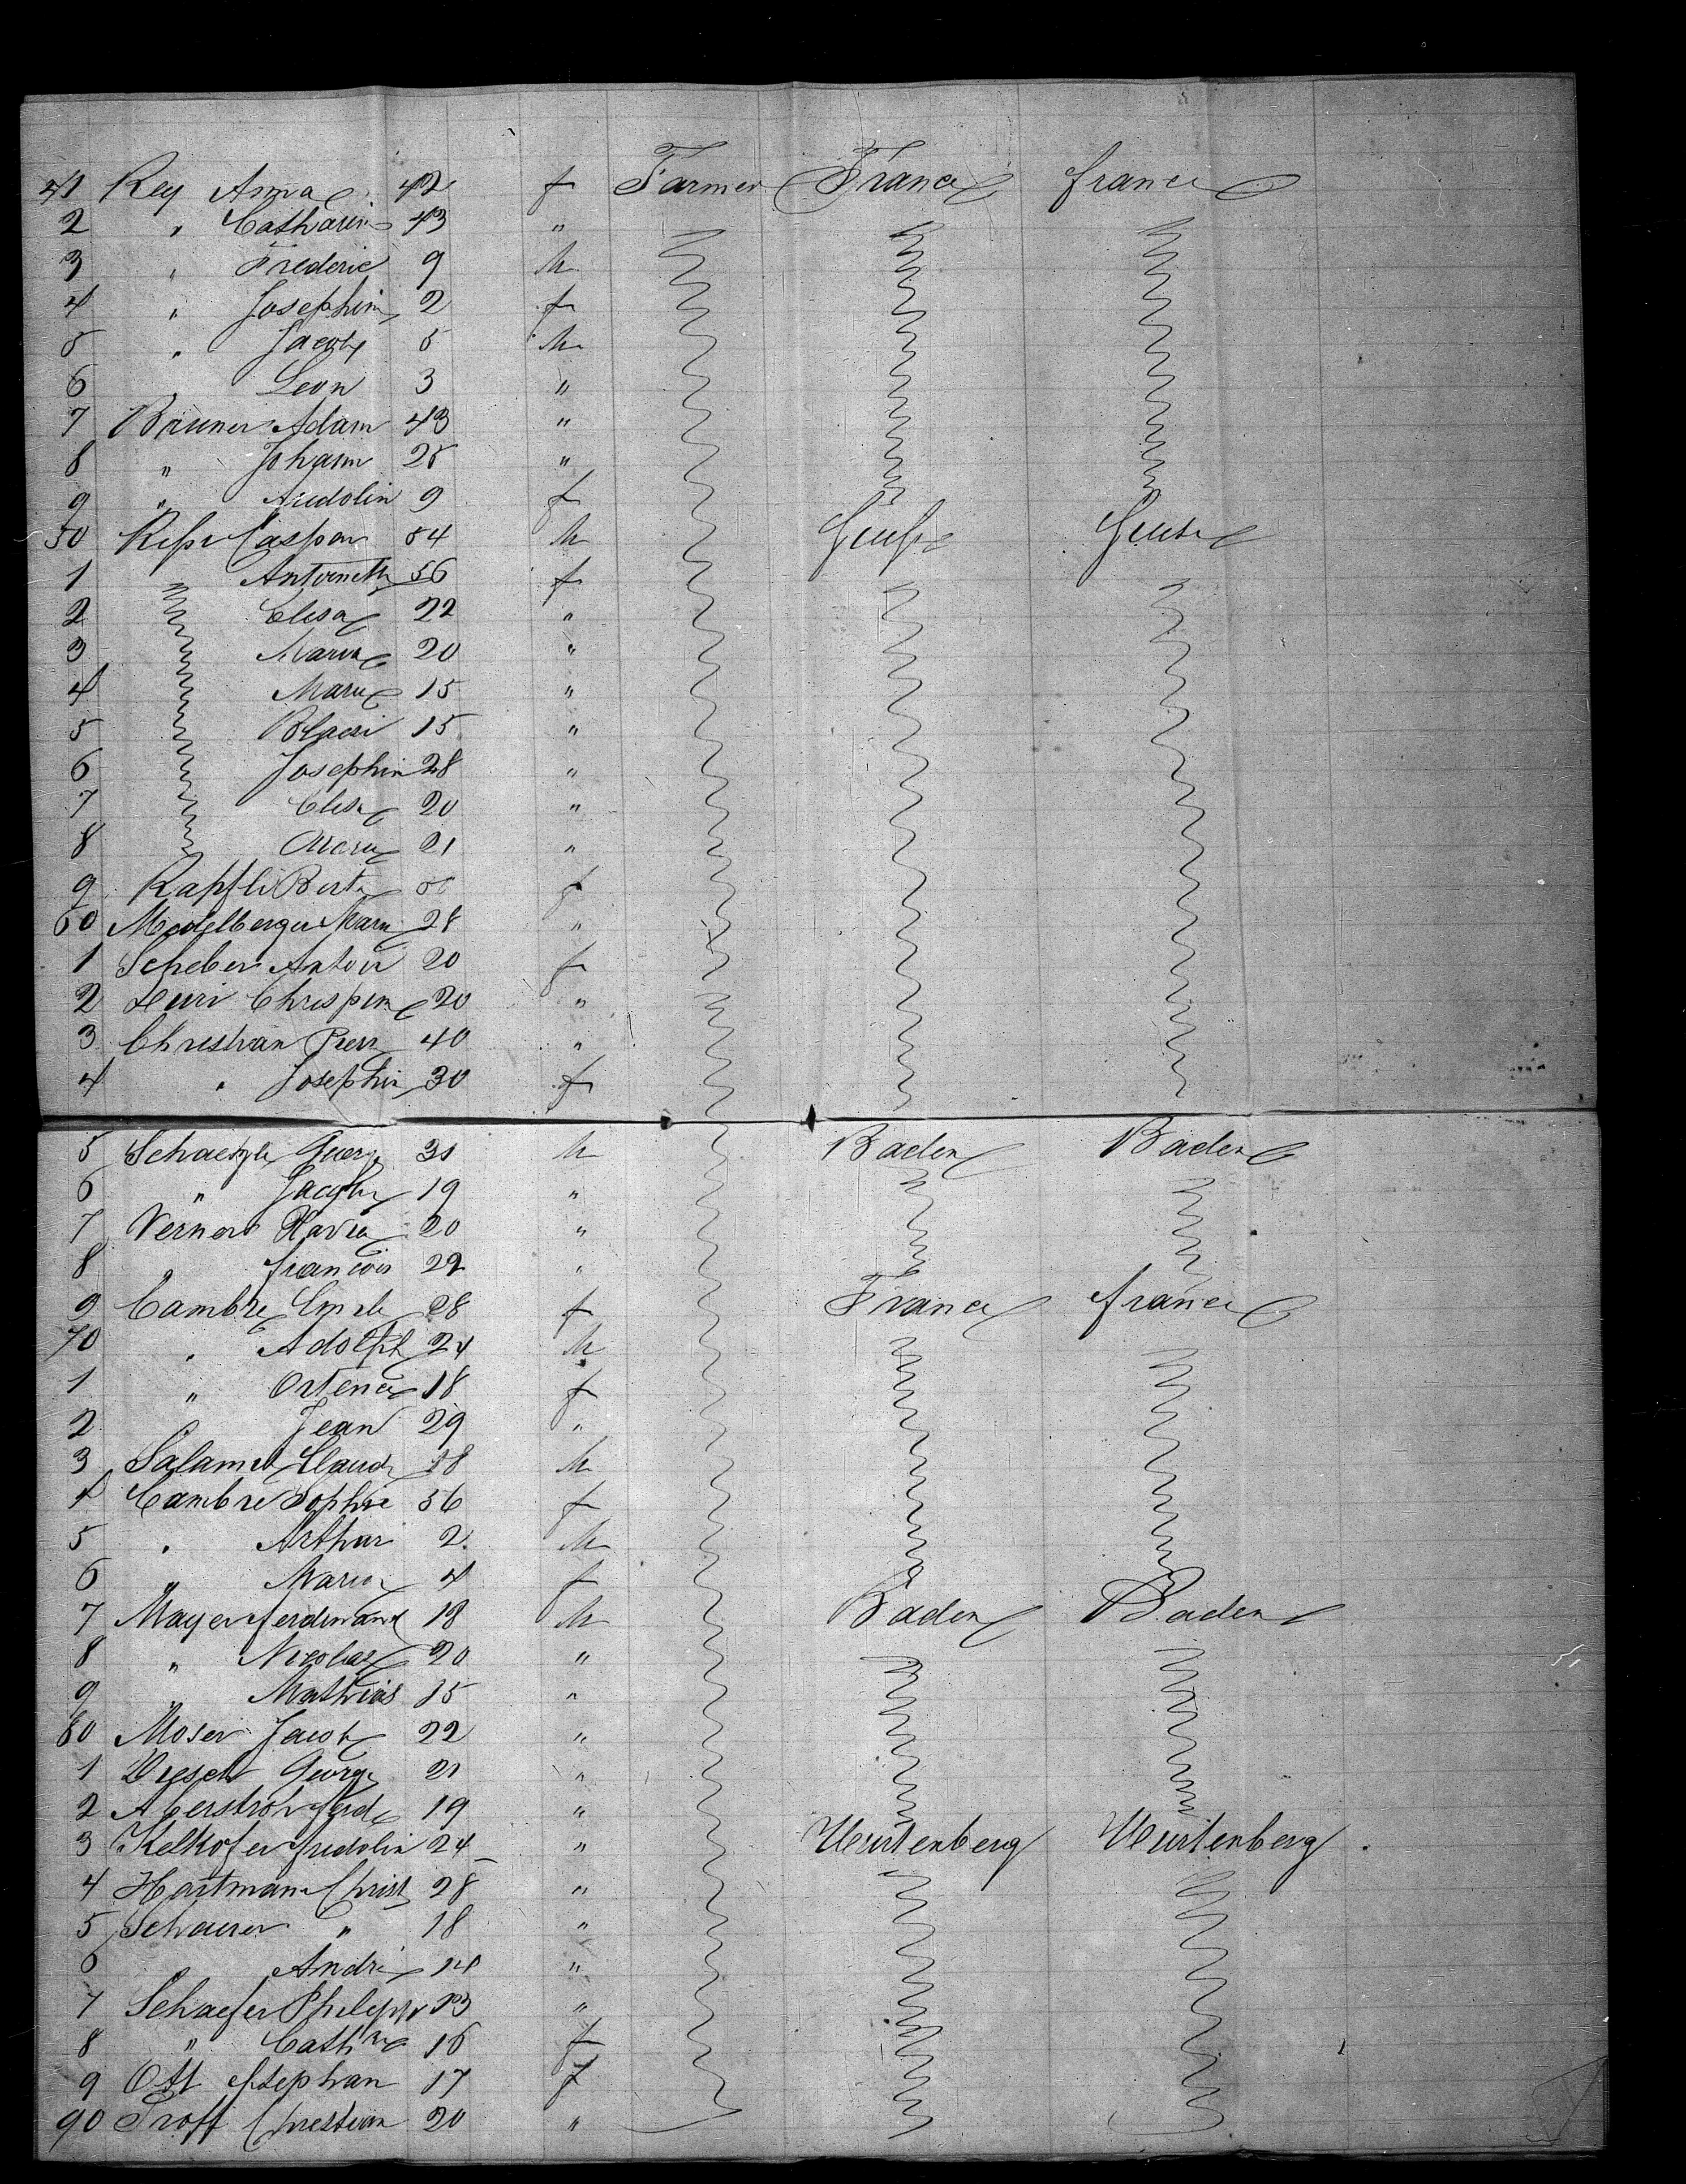 41 Rey Anna 42 f Farmer France france
2 " Catharin 43 "
3 " Frederic 9 M
4 " Josephin 2 f
5 " Jacob 5 M
6 " Leon 3 "
7 Bruner Adam 43 "
8 " Johann 25 "
9 " 9 f
50 Caspar 54 M
1 Antoineth 56 f
2 Elisa 22 "
3 Maria 20 "
4 Marie 15 "
5 15 "
6 Josephin 28 "
7 Elisa 20 "
8 Maria 21 "
9 Kapfli Berta f
60 28 "
1 Scheber Antoi 20 f
2 Chrispin 20 "
3 Christian Pierr 40 "
4 " Josephin 30 f
5 Georg 31 M Baden Baden
6 " Jacob 19 "
7 Verner Xavier 20 "
8 " francois 22 "
9 Cambre Emele 28 f France france
70 " Adolph 24 M
1 " Ortence 18 f
2 Jean 29 "
3 Claud 18 M
4 Cambre Sophie 56 f
5 " Arthur 2 M
6 " Maria 4 f
7 Mayer ferdinand 18 M Baden Baden
8 " Nicolas 20 "
9 " Mathias 15 "
80 Moser Jacob 22 "
1 Georg 21 "
2 ferd 19 "
3 Kelkofer fridolin 24 " Wurtenberg Wurtenberg
4 Hartman Christ 28 "
5 Schaurer " 18 "
6 Andre 14 "
7 Schaefer Philipp 23 "
8 " Cathne 16 f
9 Ott Stephan 17 f
90 Troff Christian 20 "